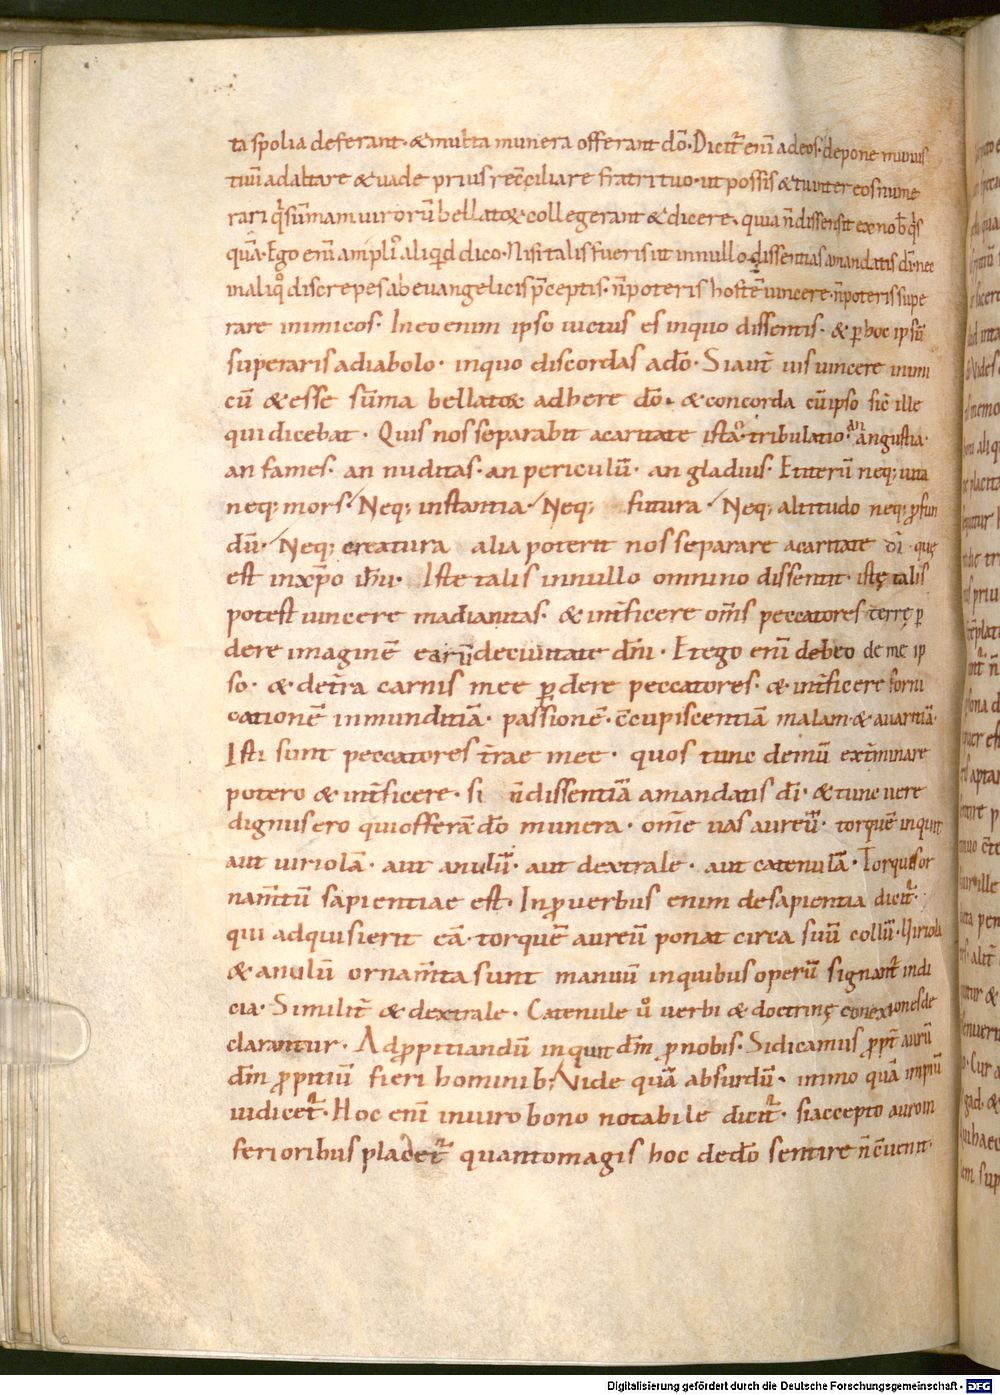 ta spolia deferant · & multa munera offerant dō. Dicit̄ enī ad eos · depone munus
tuū ad altare & uade prius rec̄ciliare fratri tuo · ut possis & tu inter eos nume
rari q̄ sūmam uirorū bellatoꝝ collegerant & dicere · quia n̄ dissensit ex nob̄ q̄s
quā · Ego enī ampli᾽ aliquid dico · Nisi talis fueris ut in nullo dissentias a mandatis dn̄i nec
in aliq̊ discrepes ab euangelicis p̄ceptis · n̄ poteris hostē uincere · n̄ poteris supe
rare inimicos · In eo enim ipso uictus es in quo dissentis · & ꝑ hoc ipsū
superaris a diabolo · in quo discordas a dō · Si aut̄ uis uincere inimi
cū & esse sūma bellatoꝝ adhere dō · & concorda cū ipso sic̄ ille
qui dicebat · Quis nos separabit a caritate · tribulatio · an angustia ·
an fames · an nuditas · an periculū · an gladius · Et iterū neq; uita
neq; mors · Neq; instantia · Neq; futura · Neq; altitudo neq; ꝓfun
dū · Neq; creatura alia poterit nos separare a caritate dī · quę
est in xp̄o ih̄u · Iste talis in nullo omnino dissentit · iste talis
potest uincere madianitas · & int̄ficere om̄s peccatores terrę ꝑ
dere imaginē earū de ciuitate dn̄i · Et ego enī debeo de me ip
so · & de t̄ra carnis mee ꝑdere peccatores · & int̄ficere forni
cationē inmunditiā · passionē · c̄cupiscentiā malam · & auaritiā ·
Isti sunt peccatores t̄rae mee · quos tunc demū ext̄minare
potero & int̄ficere · si n̄ dissentiā a mandatis dī · & tunc uere
dignus ero qui offerā dō munera · om̄e uas aureū · torquē inquit
aut uiriolā · aut anulū · aut dextrale · aut catenulā · Torquis or
nam̄tū sapientiae est · In ꝓuerbiis enim de sapientia dicit̄ ·
qui adquisierit eā · torquē aureū ponat circa suū collū · Uiriola
& anulū ornam̄ta sunt manuū in quibus operū signant̄ indi
cia · Similit̄ & dextrale · Catenule u̇ uerbi & doctrinę conexiones de
clarantur · Ad ꝓpitiandū inquit dn̄m ꝓ nobis · Si dicamus ꝓpt̄ aurū
dn̄m ꝓpitiū fieri hominib; Uide quā absurdū · immo quā impiū
uidicet̄ · Hoc enī in uiro bono notabile dicit̄ · si accepto auro in
ferioribus placet̄ quanto magis hoc de dō sentire n̄ c̄uenit ·
Digitalisierung gefördert durch die Deutsche Forschungsgemeinschaft - DFG